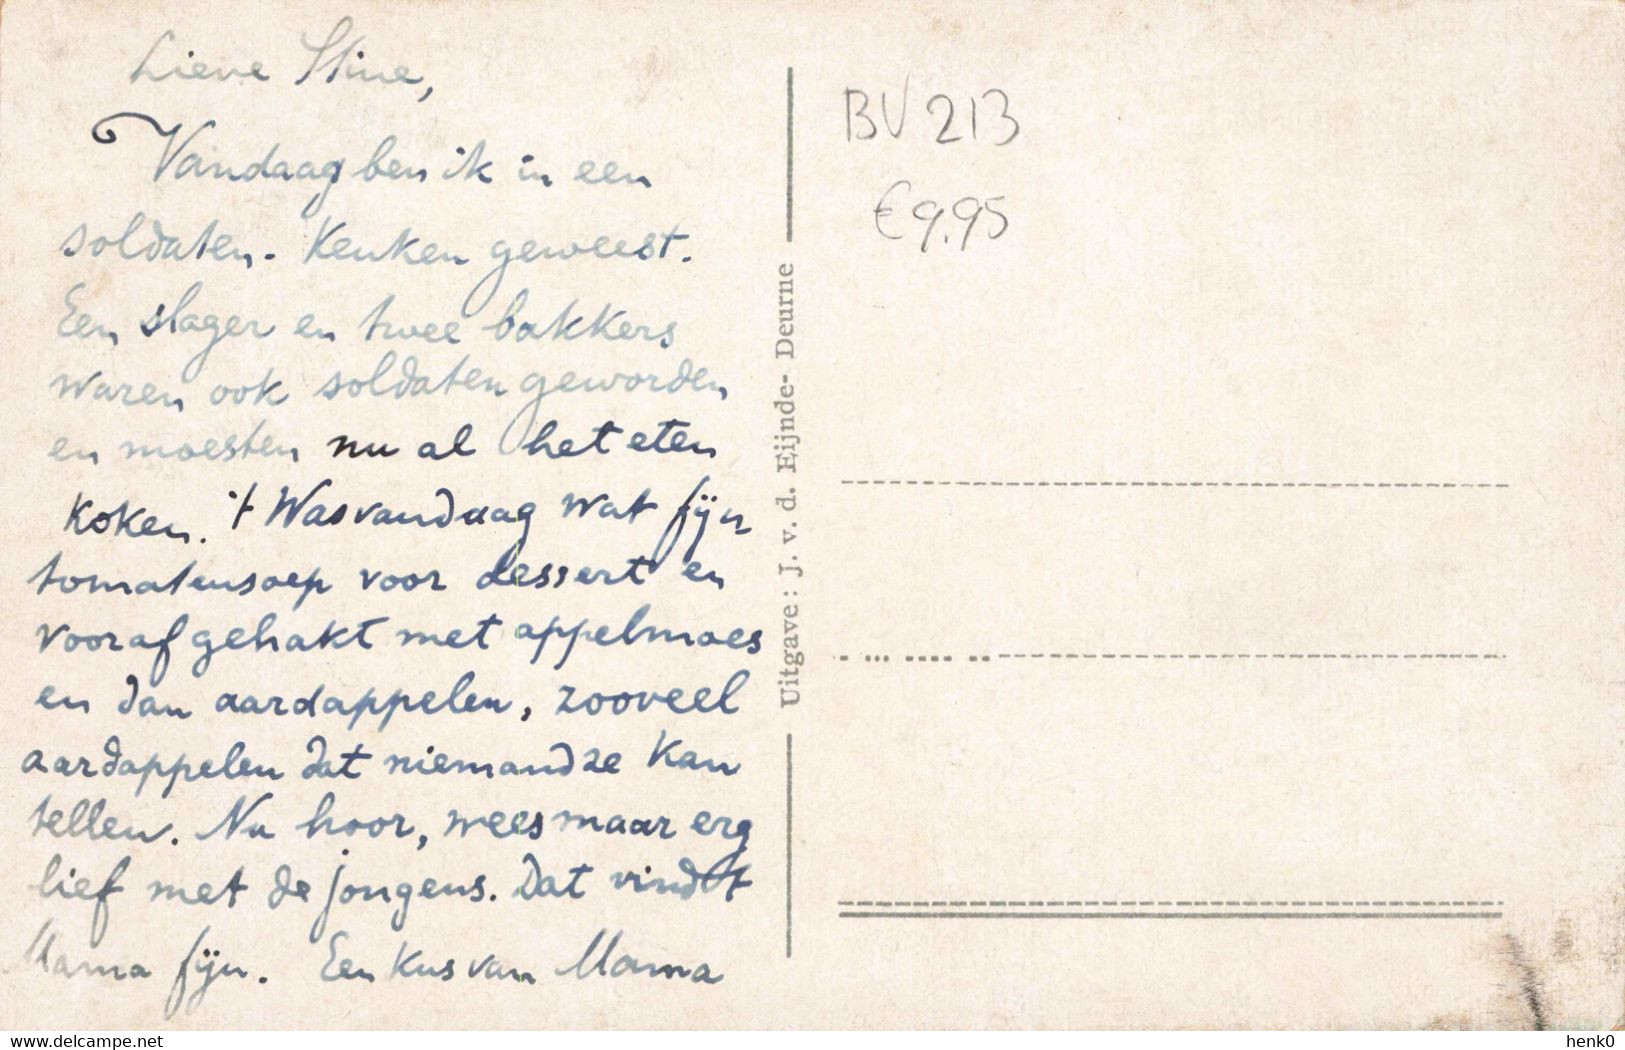 Lieve Stine,
Vandaag ben ik in een
soldaten-keuken geweest.
Een slager en twee bakkers
waren ook soldaten geworden
en moesten nu al het eten
koken. 't Was vandaag wat fijn
tomatensoep voor dessert en
vooraf gehakt met appelmoes
en dan aardappelen, zooveel
aardappelen dat niemand ze kan
tellen. Nu hoor, wees maar erg
lief met de jongens. Dat vindt
Mama fijn. Een kus van Mama
Uitgave: J. v. d. Eijnde- Deurne
BV 213
€ 9.95
www.delcampe.net
henk0